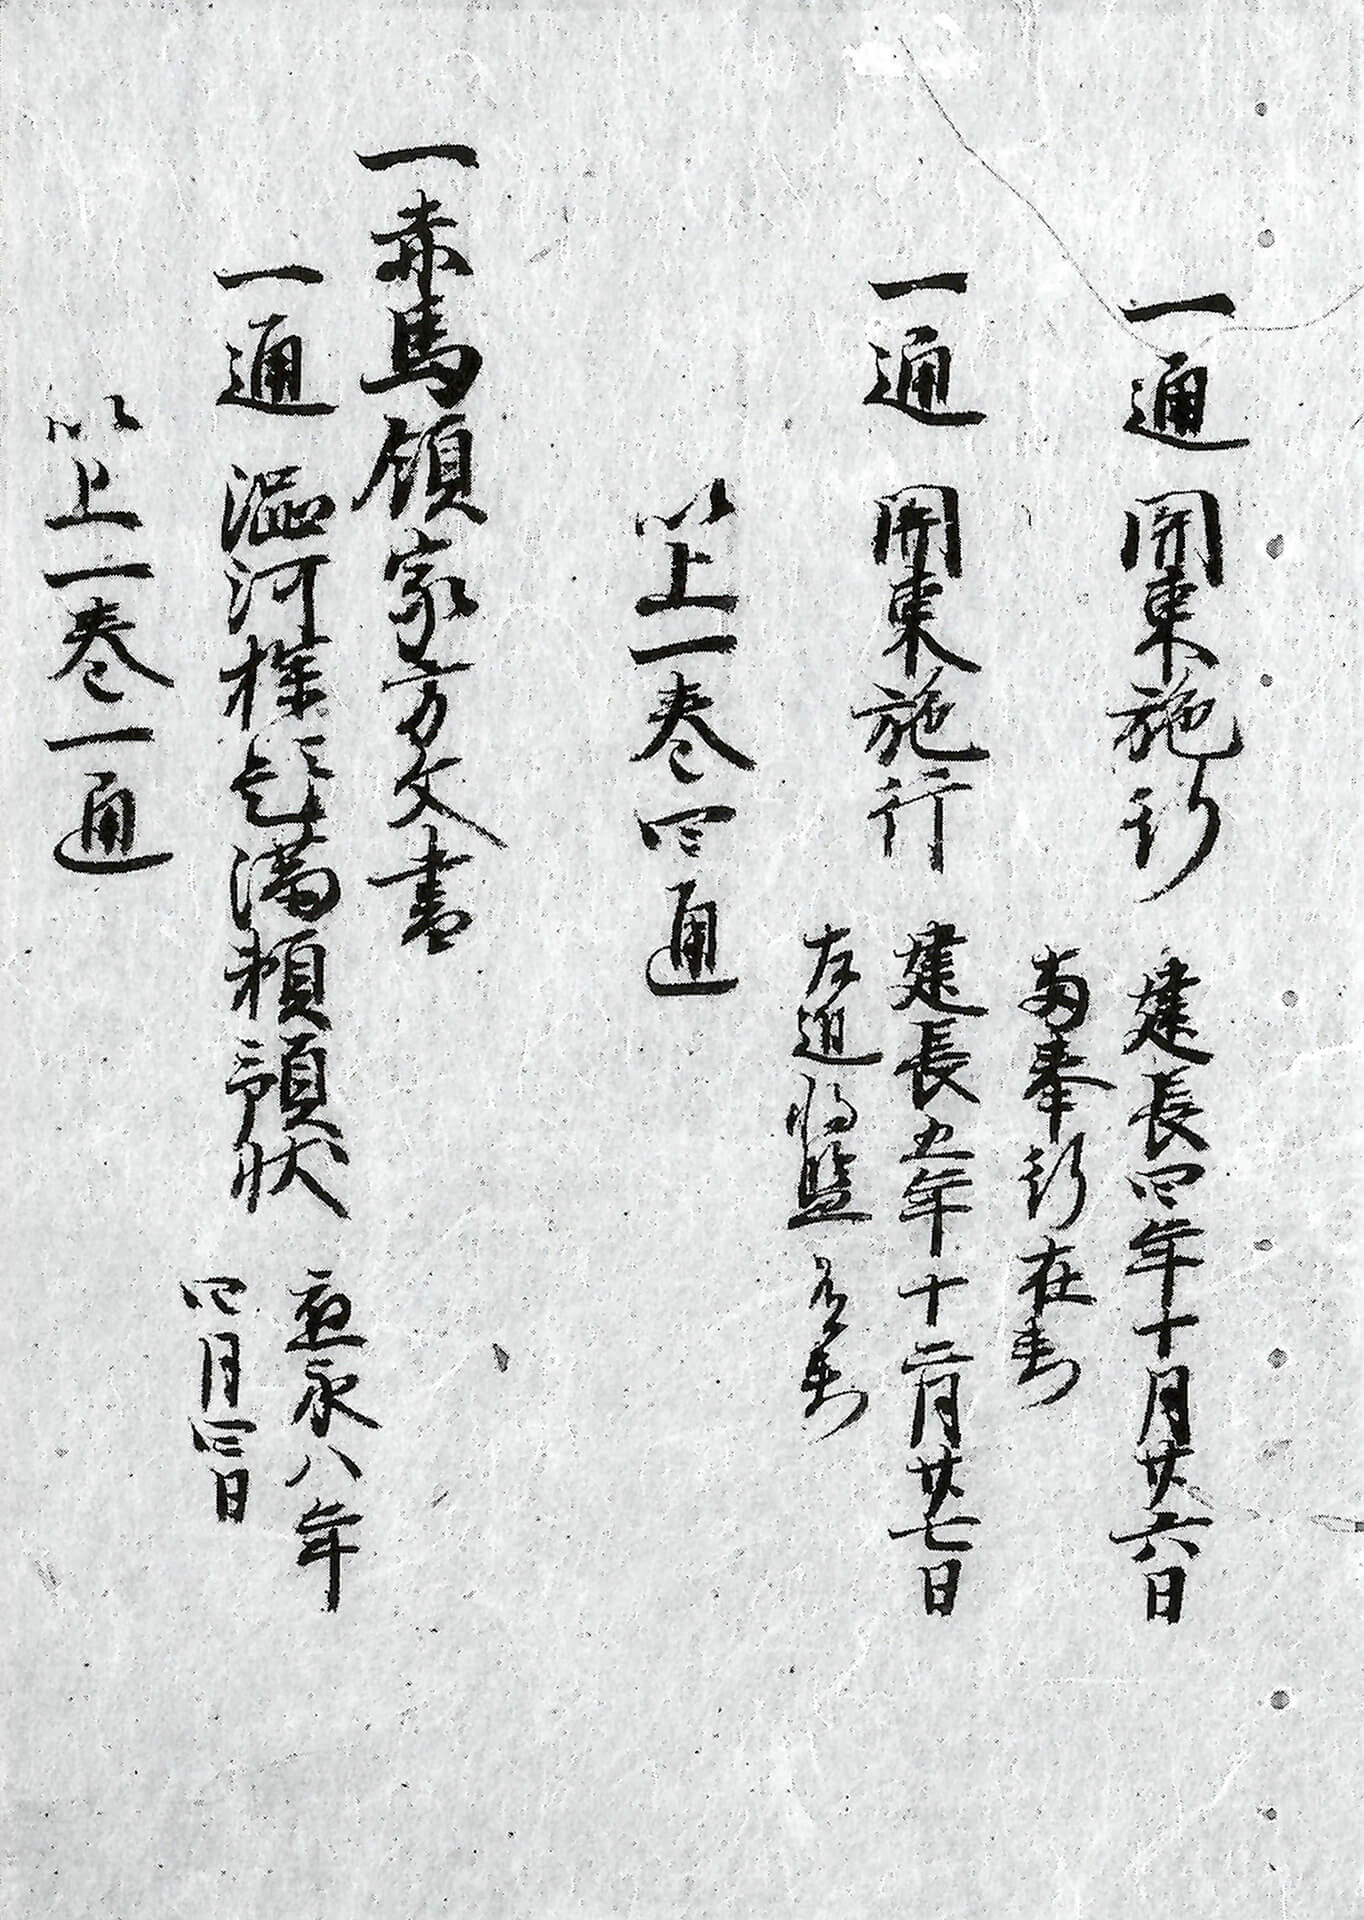 一通 関東施行 建長四年十月廿六日
両奉行在判
一通 関東施行 建長五年十二月廿七日
左近将監 在判
以上一巻四通
一赤馬領家方文書
一通 渋河探題満頼預状 応永八年
四月四日
以上一巻一通